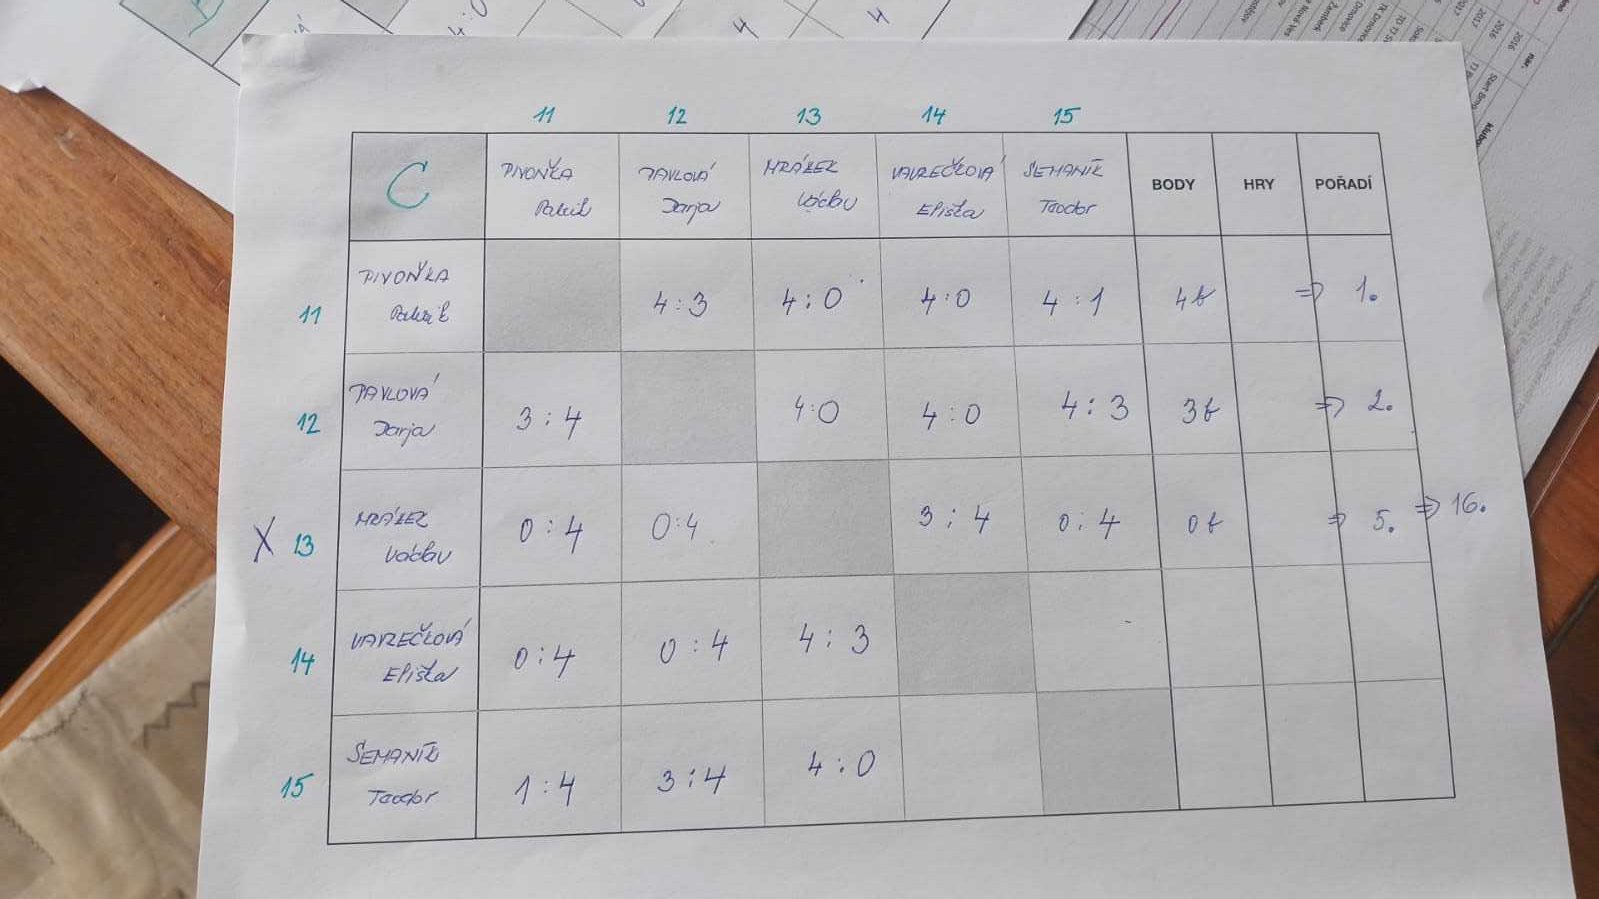 11 12 13 14 15
C PIVOŇKA PAVLOVÁ MRÁZEK VAVREČKOVÁ SEMANÍK
Patrik Darja Václav Eliška Teodor BODY HRY POŘADÍ
PIVOŇKA
11 Patrik 4:3 4:0 4:0 4:1 4b => 1.
PAVLOVÁ
12 Darja 3:4 4:0 4:0 4:3 3b => 2.
MRÁZEK
X 13 Václav 0:4 0:4 3:4 0:4 0b => 5. => 16.
VAVREČKOVÁ
14 Eliška 0:4 0:4 4:3
SEMANÍK
15 Teodor 1:4 3:4 4:0